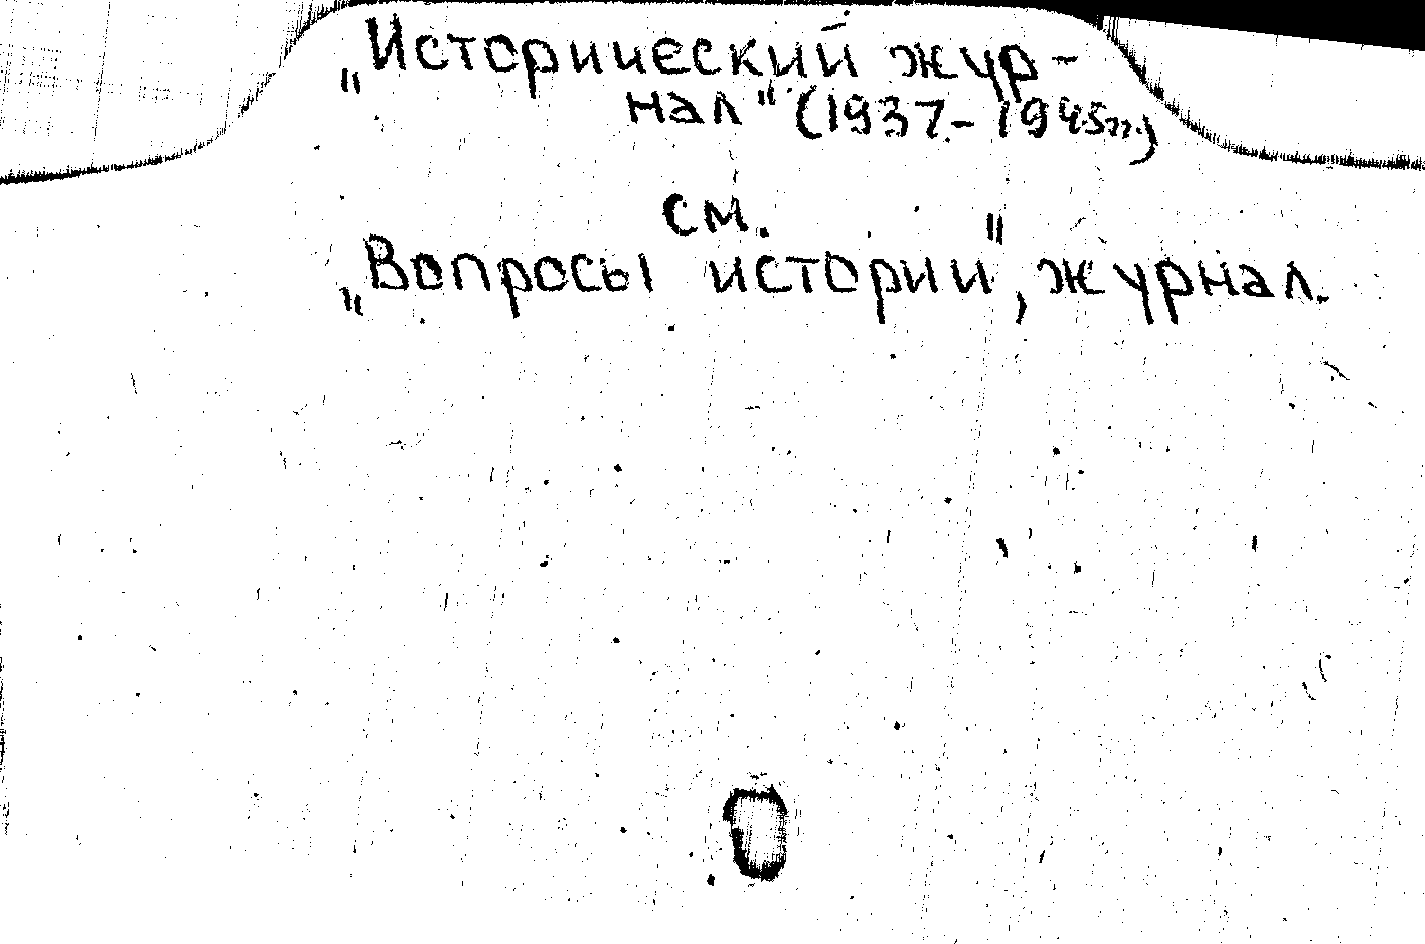 „Исторический жур-
нал" (1937.- 1945гг.)
см.
„Вопросы истории", журнал.